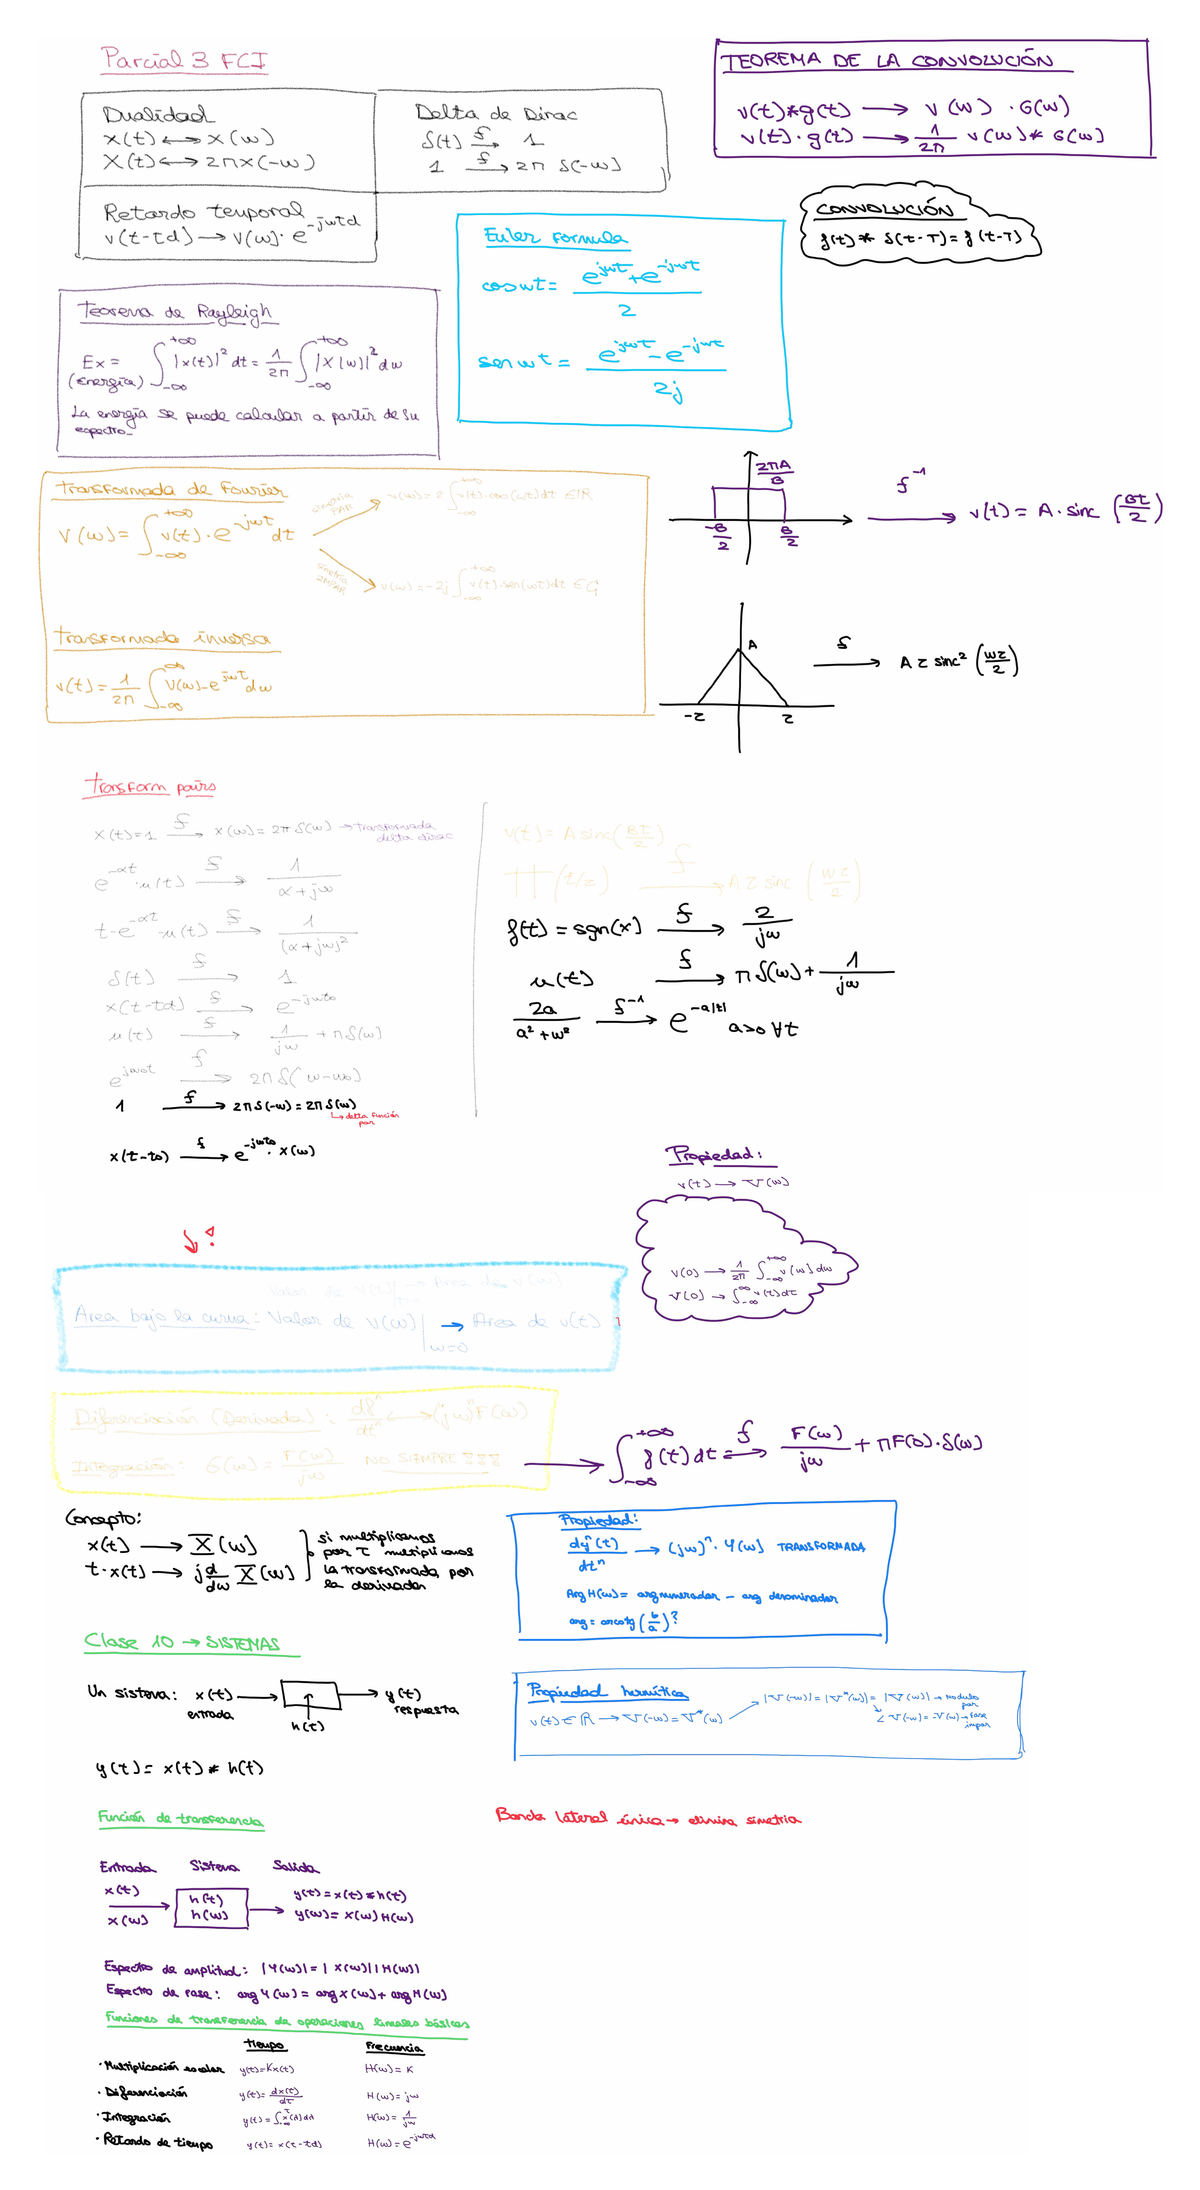 Parcial 3 FCI
Dualidad
x(t) ⟷ X(w)
X(t) ⟷ 2πx(-w)
Delta de Dirac
δ(t) f→ 1
1 f→ 2π δ(-w)
Retardo temporal
v(t-td) → V(w)· e^-jwtd
TEOREMA DE LA CONVOLUCIÓN
v(t)*g(t) → V(w) · G(w)
v(t)·g(t) → 1/2π V(w)* G(w)
CONVOLUCIÓN
f(t)* δ(t-T) = f(t-T)
Euler Formula
coswt = (e^jwt + e^-jwt)/2
sen wt = (e^jwt - e^-jwt)/2j
Teorema de Rayleigh
Ex = ∫_-∞^+∞ |x(t)|² dt = 1/2π ∫_-∞^+∞ |X(w)|² dw
(Energía)
La energía se puede calcular a partir de su
espectro_
Transformada de Fourier
V(w) = ∫_-∞^+∞ v(t)·e^-jwt dt
simetría PAR
v(w) = 2 ∫_-∞^+∞ v(t)·cos(wt)dt ∈ ℝ
simetría IMPAR
v(w) = -2j ∫_-∞^+∞ v(t)·sen(wt)dt ∈ ℂ
Transformada inversa
v(t) = 1/2π ∫_-∞^∞ V(w)·e^jwt dw
2πA/B
-B/2 B/2
f^-1 → v(t) = A·sinc (Bt/2)
A
-τ τ
f → Aτ sinc² (wτ/2)
Transform pairs
x(t)=1 f→ x(w) = 2π δ(w) → Transformada
delta dirac
e^-αt·u(t) f→ 1/(α+jw)
t·e^-αt·u(t) f→ 1/(α+jw)²
δ(t) f→ 1
x(t-td) f→ e^-jwto
u(t) f→ 1/jw + πδ(w)
e^jwot f→ 2π δ(w-wo)
1 f→ 2π δ(-w) = 2π δ(w)
↳ delta función
par
x(t-to) f→ e^-jwto · x(w)
v(t) = A sinc(Bt/2)
∏ (t/τ) f→ Aτ sinc (wτ/2)
f(t) = sgn(x) f→ 2/jw
u(t) f→ πδ(w) + 1/jw
2a/(a²+w²) f^-1→ e^-a|t| a>0 ∀t
Propiedad:
v(t) → V(w)
v(0) → 1/2π ∫_-∞^+∞ v(w) dw
V(0) → ∫_-∞^∞ v(t)dt
Area bajo la curva: Valor de V(w)|w=0 → Area de v(t)
Diferenciación (Derivada): df^n/dt^n ⟷ (jw)^n F(w)
Integración: G(w) = F(w)/jw NO SIEMPRE !!!
→ ∫_-∞^+∞ f(t)dt f⟷ F(w)/jw + πF(0)·δ(w)
Concepto:
x(t) → X(w)
t·x(t) → j d/dw X(w)
si multiplicamos
por t multiplicamos
la transformada por
la derivada
Propiedad:
dy^n(t)/dt^n → (jw)^n · Y(w) TRANSFORMADA
Arg H(w) = arg numerador - arg denominador
arg = arcotg (b/a)?
Clase 10 → SISTEMAS
Un sistema: x(t) → → y(t)
entrada h(t) respuesta
y(t) = x(t) * h(t)
Propiedad hermítica
v(t) ∈ ℝ → V(-w) = V*(w)
|V(-w)| = |V*(w)| = |V(w)| → modulo
par
∠V(-w) = -V(w) → fase
impar
Función de transferencia
Banda lateral única → elimina simetria
Entrada Sistema Salida
x(t) h(t) y(t) = x(t) * h(t)
x(w) h(w) y(w) = x(w) H(w)
Espectro de amplitud: |Y(w)| = |X(w)||H(w)|
Espectro de fase: arg Y(w) = arg X(w) + arg H(w)
Funciones de transferencia de operaciones lineales básicas
Tiempo Frecuencia
· Multiplicación escalar y(t)=Kx(t) H(w) = K
· Diferenciación y(t) = dx(t)/dt H(w) = jw
· Integración y(t) = ∫_-∞^t x(λ)dλ H(w) = 1/jw
· Retardo de tiempo y(t) = x(t-td) H(w) = e^-jwtd